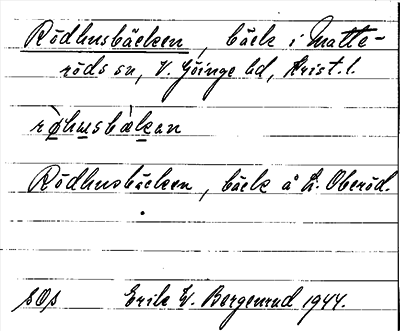 Rödhusbäcken, bäck i Matte-
röds sn, V. Göinge hd, Krist. l.
rø̀husbæ̀kan
Rödhusbäcken, bäck å L. Oberöd.
sOs Erik W. Bergenrud 1944.